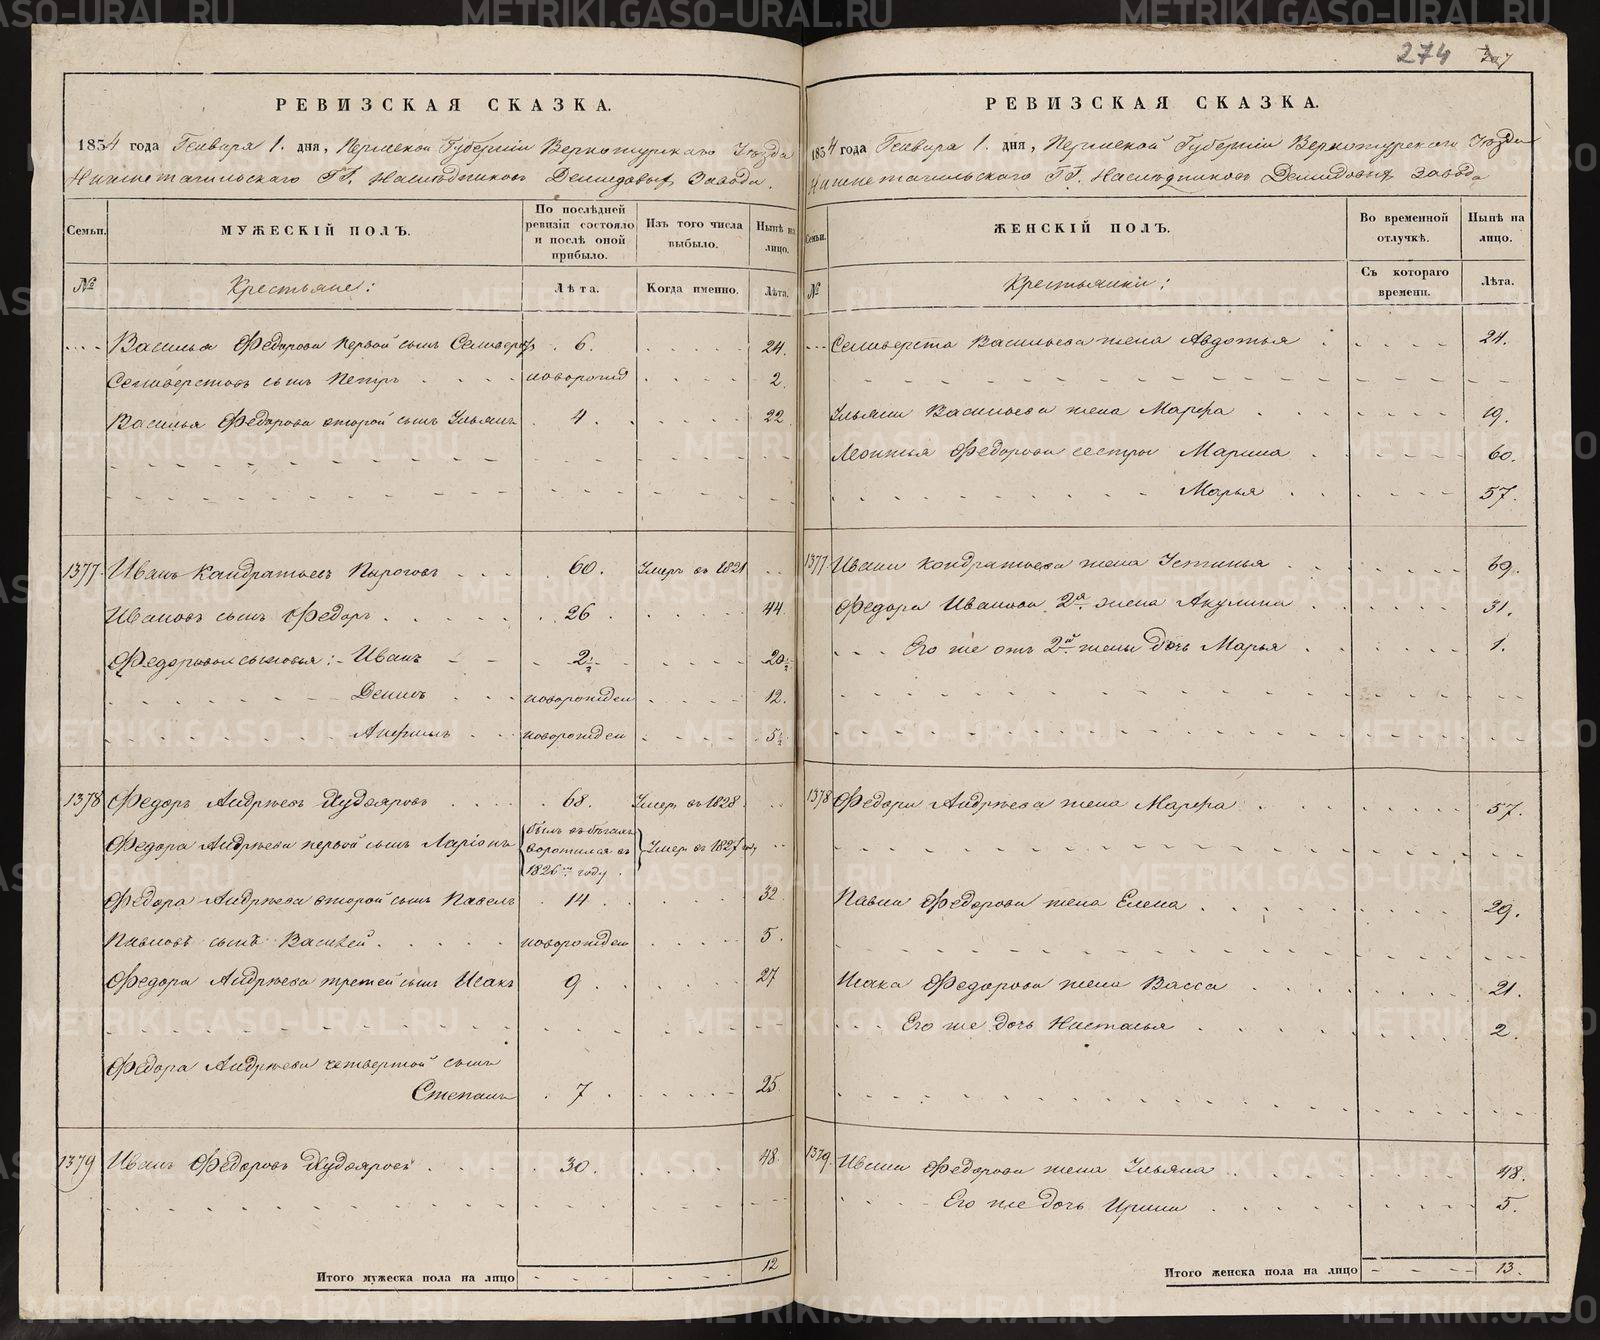 274
РЕВИЗСКАЯ СКАЗКА.
1834 года Генваря 1. дня, Пермской Губерніи Верхотурскаго Уѣзда
Нижнетагильскаго ГГ. Наслѣдниковъ Демидовыхъ Завода.
Семьи. МУЖЕСКІЙ ПОЛЪ. По послѣдней ревизіи состояло и послѣ оной прибыло. Изъ того числа выбыло. Нынѣ на лицо.
№ Крестьяне: Лѣта. Когда именно. Лѣта.
Василья Федорова первой сынъ Селиверстъ 6. 24.
Селиверстовъ сынъ Петръ новорожд 2.
Василья Федорова второй сынъ Ульянъ 4. 22
1377 Иванъ Кандратьевъ Пироговъ 60. Умеръ въ 1821
Ивановъ сынъ Федоръ 26 44.
Федоровы сыновья: Иванъ 2½ 20½
Денисъ новорожден 12.
Анфимъ новорожден 5½
1378 Федоръ Андрѣевъ Худояровъ 68. Умер. въ 1828.
Федора Андрѣева первой сынъ Ларіонъ былъ въ бѣгахъ воротился въ 1826м году. Умер. въ 1827 году
Федора Андрѣева второй сынъ Павелъ 14 32
Павловъ сынъ Василей новорожден 5.
Федора Андрѣева третей сынъ Исакъ 9 27
Федора Андрѣева четвертой сынъ
Степанъ 7 25
1379 Иванъ Федоровъ Худояровъ 30. 48.
Итого мужеска пола на лицо 12
РЕВИЗСКАЯ СКАЗКА.
1834 года Генваря 1. дня, Пермской Губерніи Верхотурскаго Уѣзда
Нижнетагильскаго ГГ. Наслѣдниковъ Демидовыхъ Завода
Семьи. ЖЕНСКІЙ ПОЛЪ. Во временной отлучкѣ. Нынѣ на лицо.
№ Крестьянки: Съ котораго времени. Лѣта.
Селиверста Васильева жена Авдотья 24.
Ульяна Васильева жена Марфа 19.
Леонтья Федорова сестры Марина 60.
Марья 57.
1377 Ивана Кондратьева жена Устинья 69.
Федора Иванова 2я жена Акулина 31.
Его же отъ 2й жены дочь Марья 1.
1378 Федора Андрѣева жена Марфа 57.
Павла Федорова жена Елена 29.
Исака Федорова жена Васса 21.
Его же дочь Настасья 2.
1379. Ивана Федорова жена Ульяна 48.
Его же дочь Ирина 5.
Итого женска пола на лицо 13.
METRIKI.GASO-URAL.RU